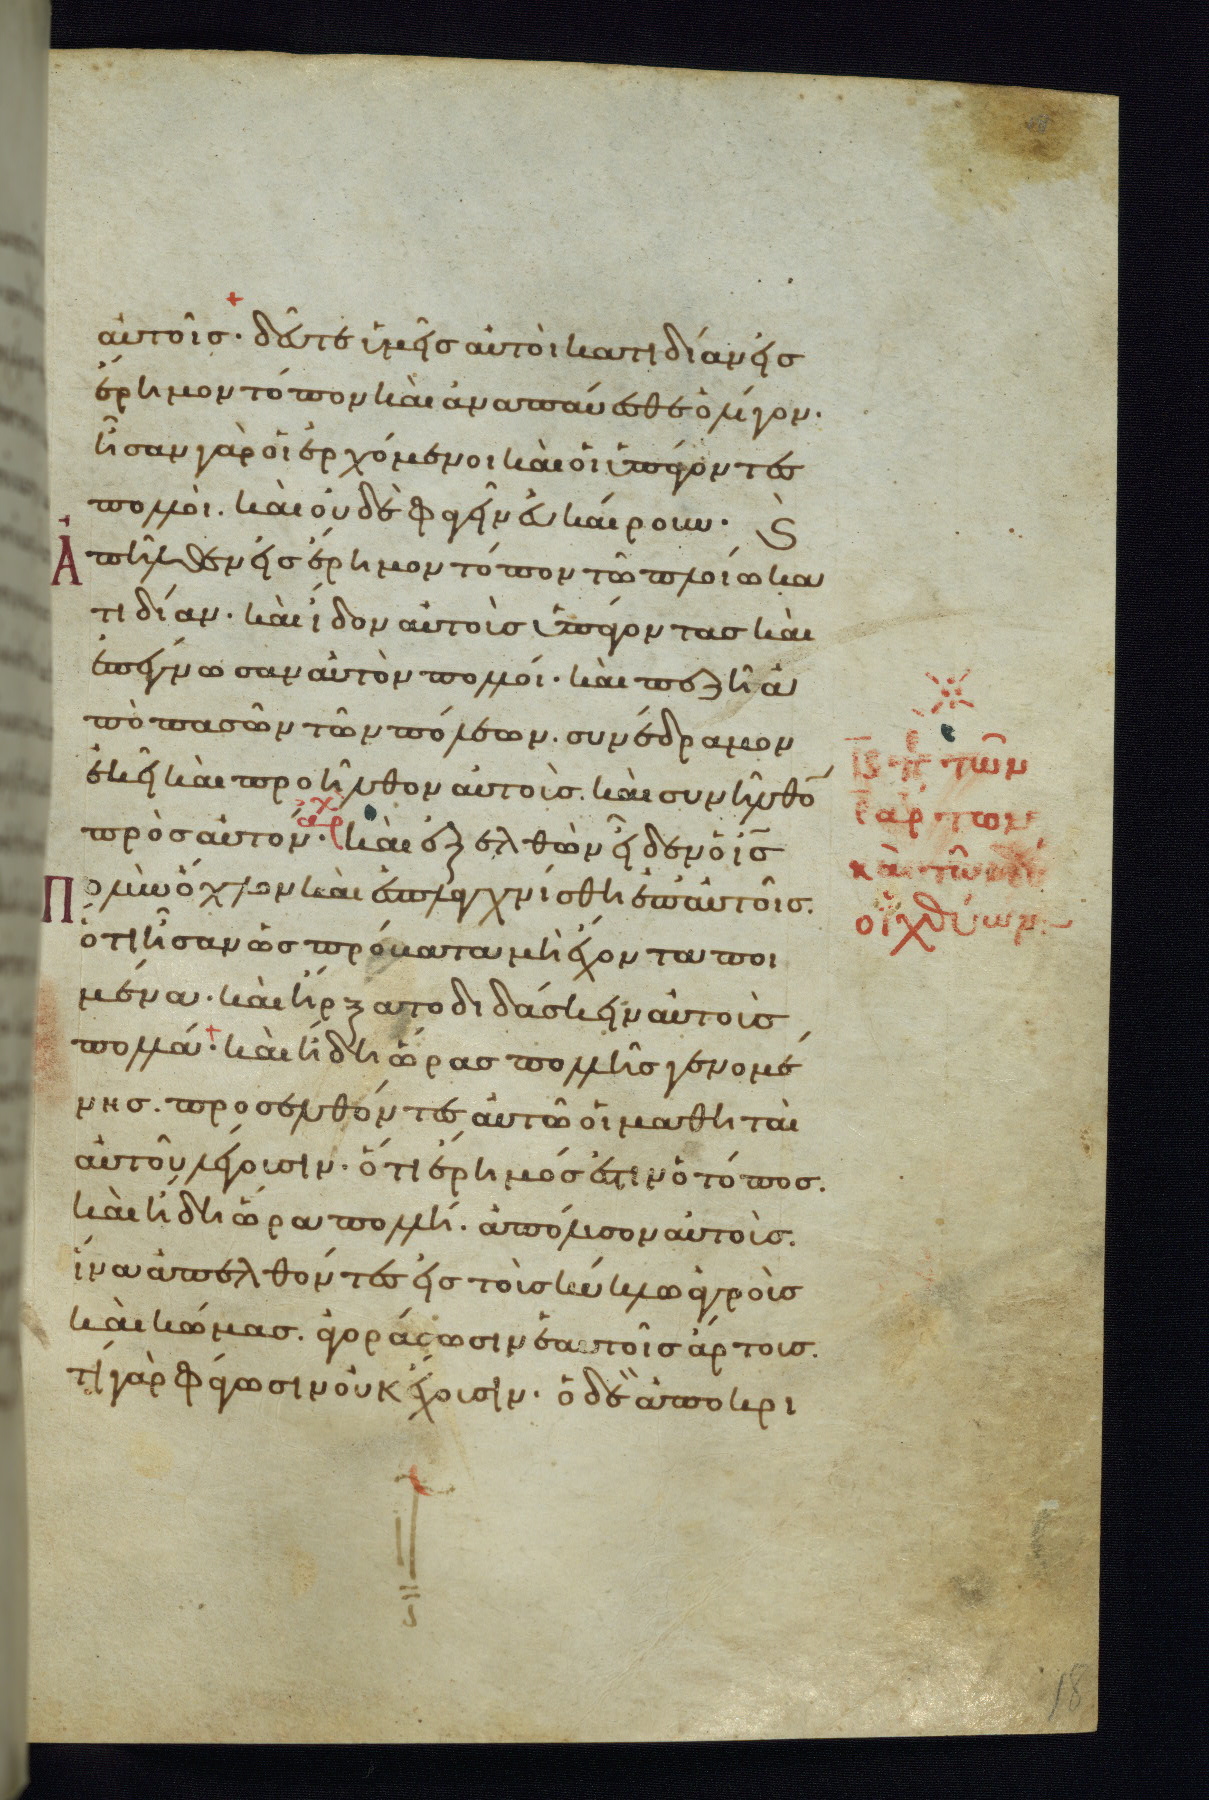 αὐτοῖς· δεῦτε ὑμεῖς αὐτοὶ κατιδίαν εἰς
ἔρημον τόπον καὶ ἀναπαύεσθε ὀλίγον·
ἦσαν γὰρ οἱ ἐρχόμενοι καὶ οἱ ὑπάγοντες
πολλοὶ. καὶ οὐδὲ φαγεῖν εὐκαίρουν·
Ἀπῆλθεν εἰς ἔρημον τόπον τῶ πλοίω κα
τιδίαν· καὶ εἶδον αὐτοὺς ὑπάγοντας καὶ
ἐπέγνωσαν αὐτὸν πολλοί· καὶ πεζῆ ἀ
πὸ πασῶν τῶν πόλεων. συνέδραμον
ἐκεῖ καὶ προῆλθον αὐτοὺς. καὶ συνῆλθο̅
πρὸς αὐτον· ἀρχ καὶ ἐξελθὼν εἶδεν ὁ ι̅ς̅
Πολὺν ὄχλον καὶ ἐσπλαγχνίσθη ἐπαὐτοῖς.
ὅτι ἦσαν ὡς πρόβατα μὴ ἔχοντα ποι
μένα· καὶ ἤρξατο διδάσκειν αὐτοὺς
πολλά· καὶ ἤδη ὥρας πολλῆς γενομέ
νης. προσελθόντες αὐτῶ οἱ μαθηταὶ
αὐτοῦ λέγουσιν· ὅτι ἔρημός ἐστιν ὁ τόπος.
καὶ ἤδη ὥρα πολλή· ἀπόλυσον αὐτοὺς.
ἵνα ἀπελθόντες εἰς τοὺς κύκλω ἀγροὺς
καὶ κώμας. ἀγοράσωσιν ἑαυτοῖς ἄρτους.
τί γὰρ φάγωσιν οὐκ ἔχουσιν· ὁ δὲ ἀποκρι
τῶν
ἄρτων
καὶ τῶν
ἰχθύων
18